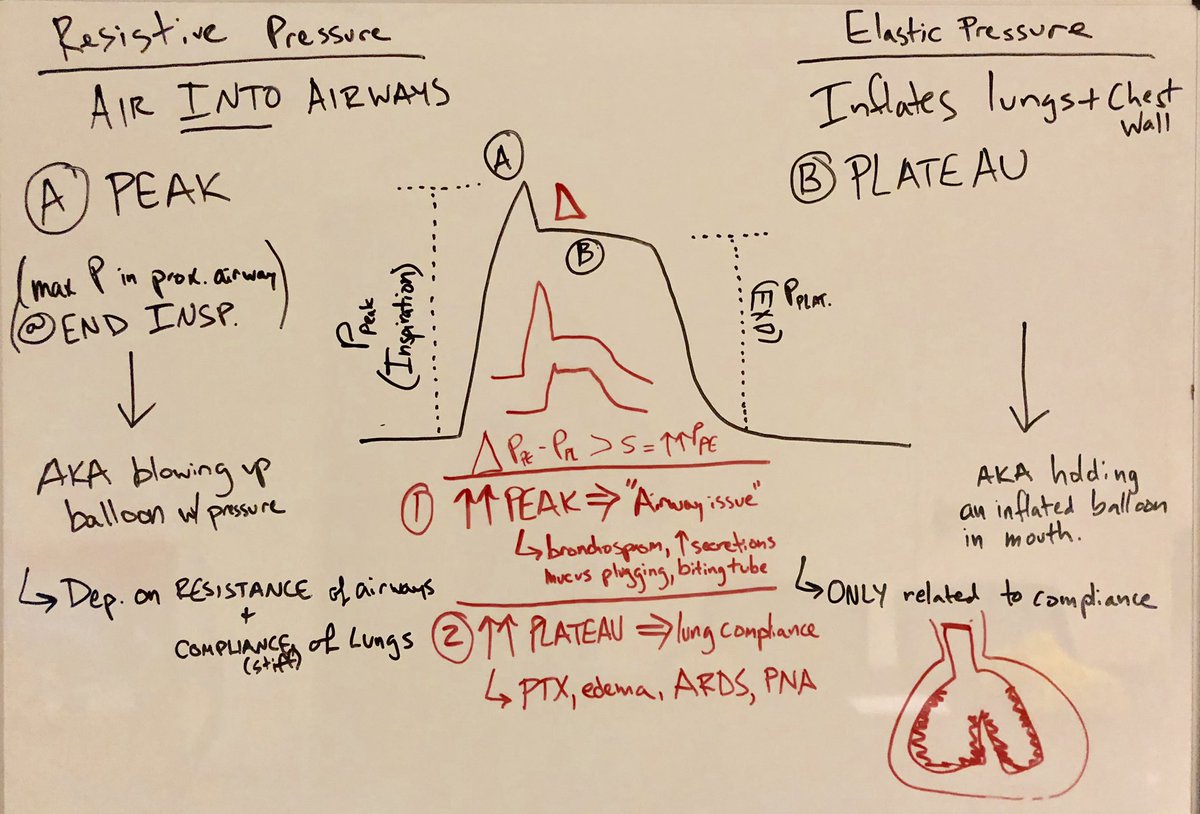 Resistive Pressure
AIR INTO AIRWAYS
Ⓐ PEAK
(max P in prox. airway)
@ END INSP.
↓
AKA blowing up
balloon w/ pressure
↳ Dep. on RESISTANCE of airways
+
COMPLIANCE of Lungs
(stiff)
Ⓐ
Δ
Ⓑ
P Peak
(Inspiration)
P PLAT.
(EXP)
Δ P PE - P PL > 5 = ↑↑ P PE
① ↑↑ PEAK ⇒ "Airway issue"
↳ bronchospasm, ↑ secretions
mucus plugging, biting tube
② ↑↑ PLATEAU ⇒ lung compliance
↳ PTX, edema, ARDS, PNA
Elastic Pressure
Inflates lungs + Chest
Wall
Ⓑ PLATEAU
↓
AKA holding
an inflated balloon
in mouth.
↳ ONLY related to compliance